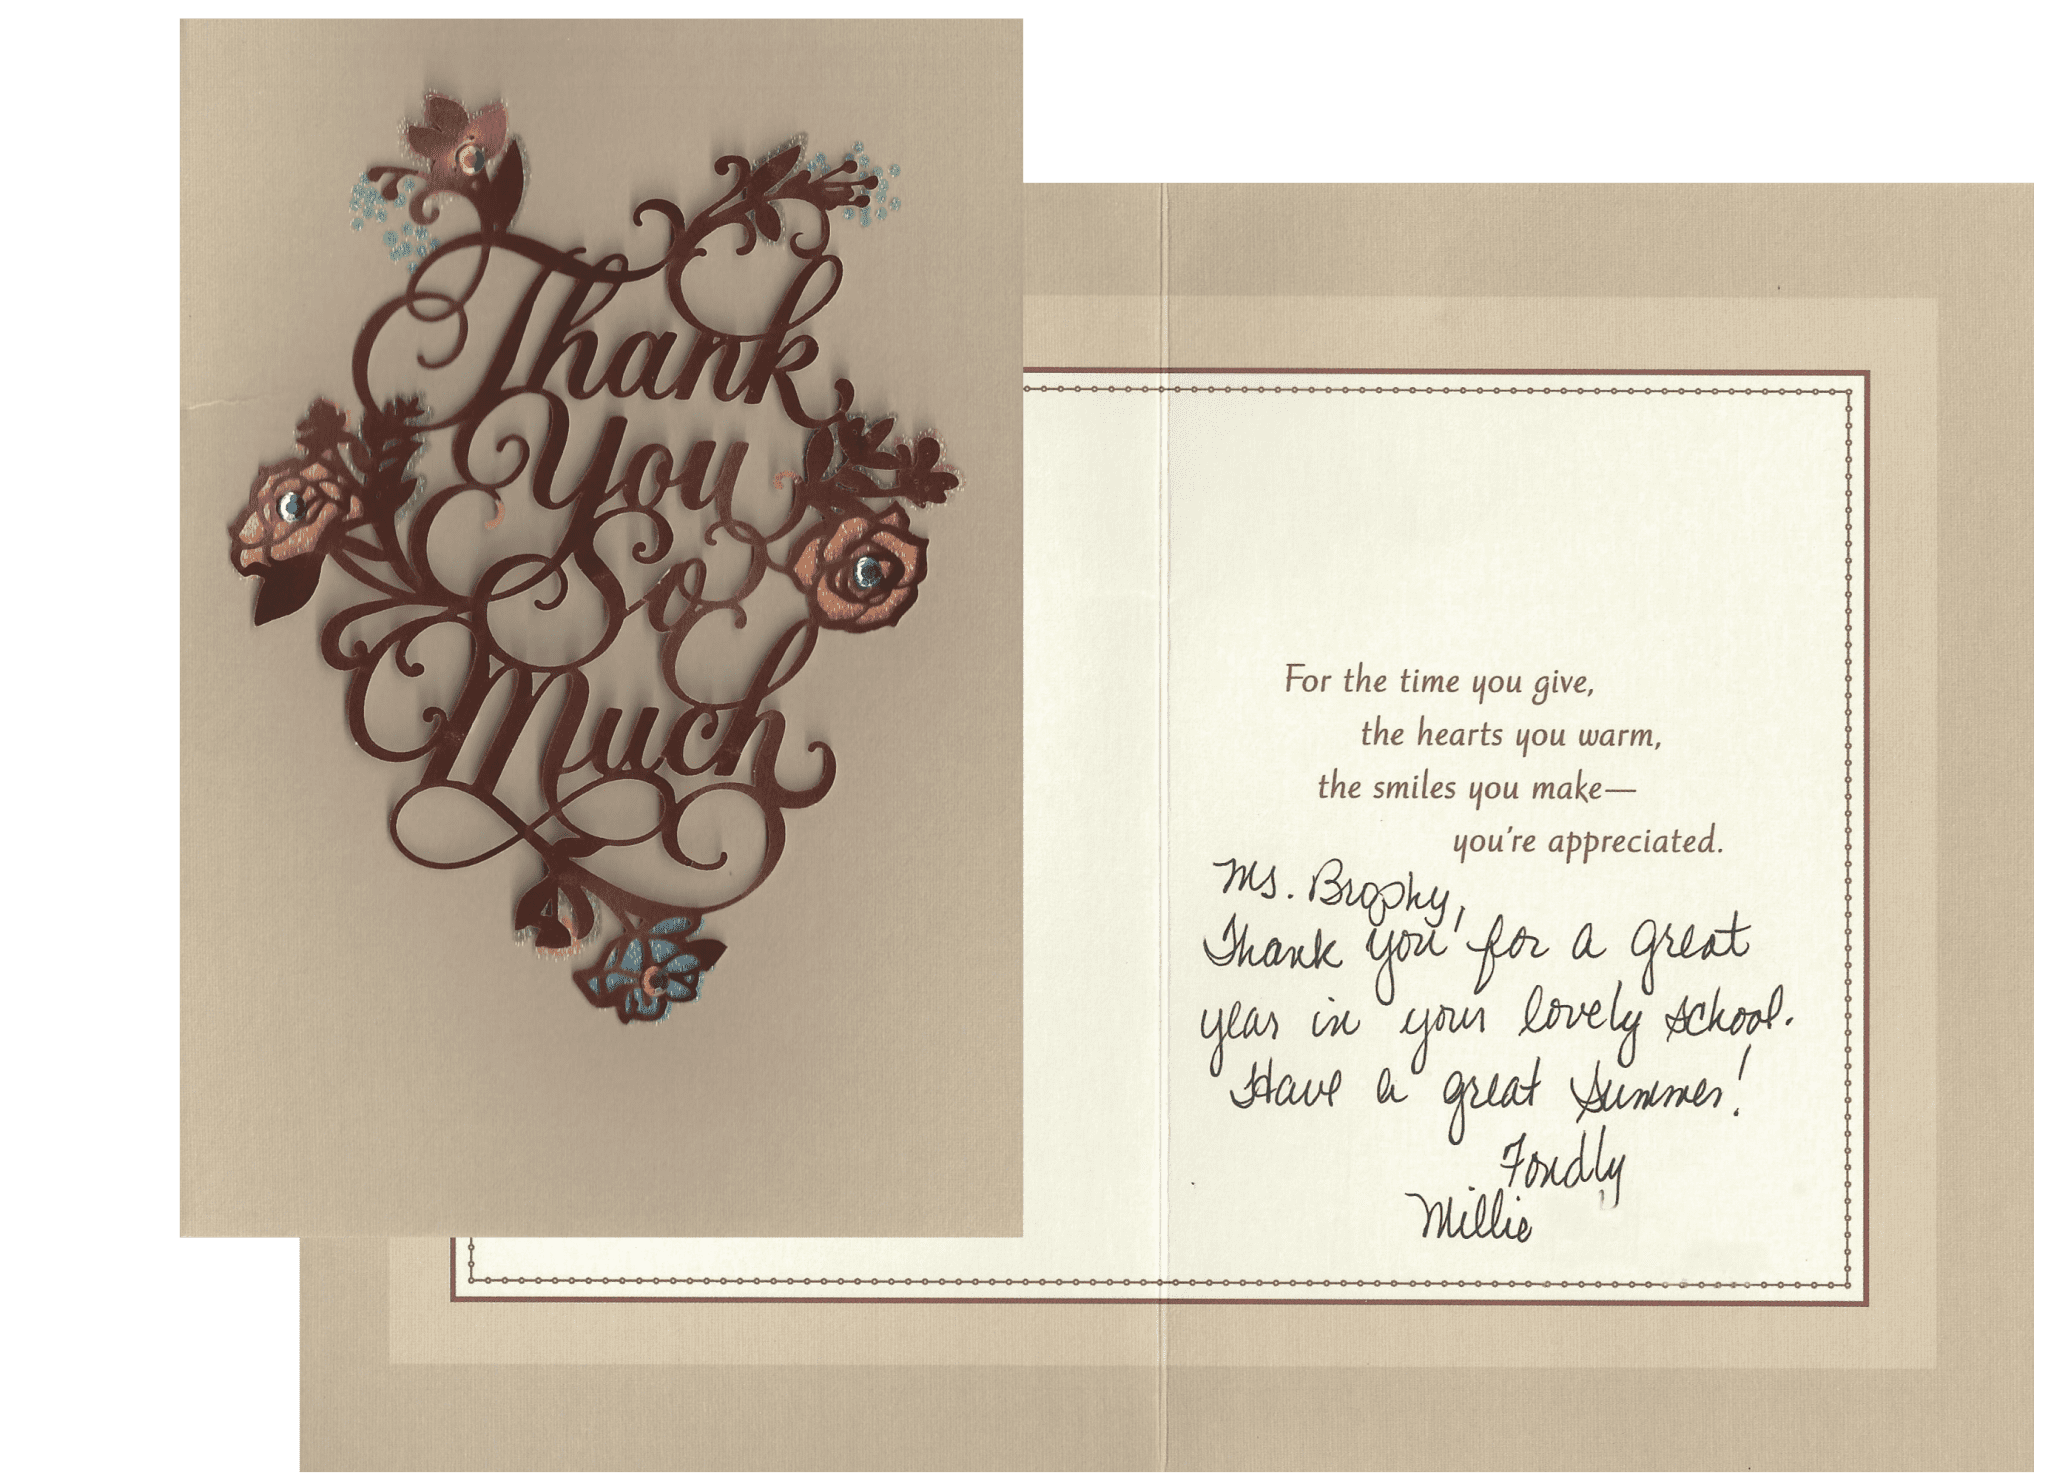 Thank
You
So
Much
For the time you give,
the hearts you warm,
the smiles you make—
you're appreciated.
Ms. Brophy,
Thank you for a great
year in your lovely school.
Have a great summer!
Fondly
Millie